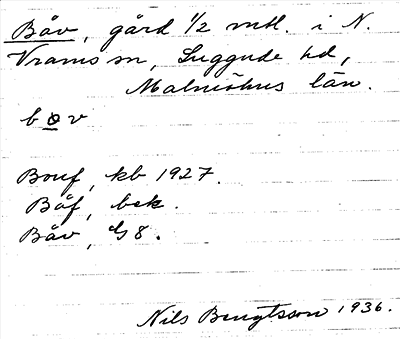 Båv, gård 1/2 mtl. i N.
Vrams sn, Luggude hd,
Malmöhus län.
bov
Bouf, kb 1927.
Båf, bek.
Båv, G 8.
Nils Bengtsson 1936.